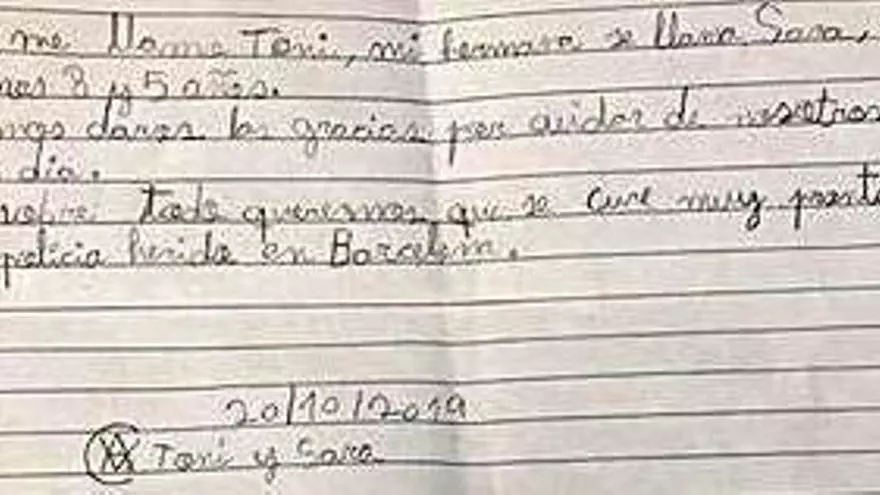 me llamo Toni, mi hermana se llama Sara,
mos 8 y 5 años.
daros las gracias por cuidar de nosotros
dia.
sobre todo queremos que se cure muy pronto
policia herido en Barcelona.
20/10/2019
Toni y Sara